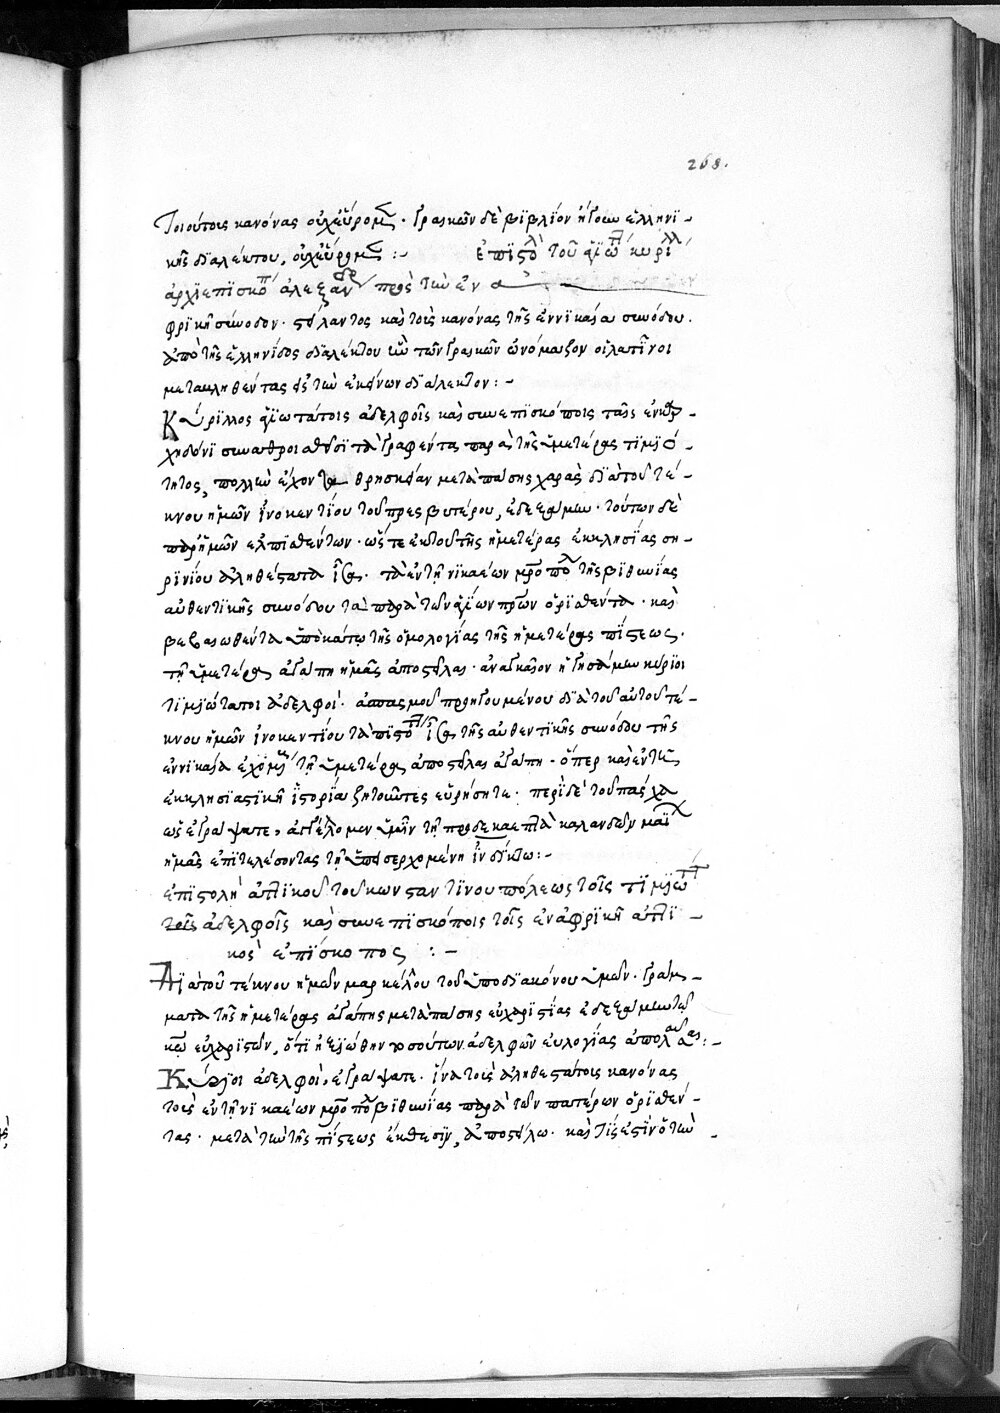 268.
Τοιούτοις κανόνας οὐχ εὕρομεν· Γραικῶν δὲ βϊβλίον ἤγουν ἑλληνϊ-
κῆς διαλέκτου, οὐχ εὕρομεν :- ἐπϊστολὴ τοῦ ἁγϊωτ κυρίλλ
ἀρχϊεπϊσκόπ ἀλεξανδρ πρὸς τὴν ἐν α
φρϊκῆ σύνοδον· στείλαντος καὶ τοὺς κανόνας τῆς ἐν νϊκαία συνόδου.
ἀπὸ τῆς ἑλληνίδος διαλέκτου ὑπὸ τῶν Γραικῶν ὠνόμαζον οἱ λατῖνοι
μεταβληθέντας εἰς τὴν ἐκείνων διάλεκτον :-
Κύρϊλλος ἁγϊωτάτοις ἀδελφοῖς καὶ συνεπϊσκόποις ταῖς ἐν καρ-
χηδόνϊ συναθροισθεῖσϊ τὰ γραφέντα παρὰ τῆς ὑμετέρας τϊμϊό-
τητος, πολλὴν ἔχοντα θρησκείαν μετὰ πάσης χαρᾶς δϊὰ τοῦ τέ-
κνου ἡμῶν ἰνοκεντίου τοῦ πρεσβυτέρου, ἐδεξάμην· τούτων δὲ
παρ' ἡμῶν ἐλπϊσθέντων· ὥστε ἐκ τοῦ τῆς ἡμετέρας ἐκκλησΐας ση-
ρϊνίου ἀληθέστατα ἴσα· τὰ ἐν τῆ νϊκαέων μητροπόλ τῆς βϊθυνίας
αὐθεντϊκῆς συνόδου τὰ παρὰ τῶν ἁγίων πρων ὁρϊσθέντα· καὶ
βεβαιωθέντα ὑποκάτω τῆς ὁμολογίας τῆς ἡμετέρας πΐστεως·
τῆ ὑμετέρα ἀγάπη ἡμᾶς ἀποστεῖλαι· ἀναγκαῖον ἡγησάμην κύρϊοι
τϊμϊώτατοι ἀδελφοί· ἀσπασμοῦ προηγουμένου δϊὰ τοῦ αὐτοῦ τέ-
κνου ἡμῶν ἰνοκεντίου τὰ πϊστότατ ἴσα τῆς αὐθεντϊκῆς συνόδου τῆς
ἐν νϊκαία ἐχομεν τῆ ὑμετέρα ἀποστεῖλαι ἀγάπη· ὅπερ καὶ ἐν τῆ
ἐκκλησϊαστϊκῆ ἱστορία ζητοῦντες εὑρήσητε· περὶ δὲ τοῦ πάσχα
ὡς ἐγράψατε, ἀγγέλομεν ὑμῖν τῆ πρὸ δεκαεπτὰ καλανδῶν μαϊ
ἡμᾶς ἐπϊτελέσοντας τῆ ὑπεισερχομένη ἰνδϊκτω :-
ἐπϊστολὴ ἀττϊκοῦ τοῦ κωνσταντϊνουπόλεως τοῖς τϊμϊωτ
τοῖς ἀδελφοῖς καὶ συνεπϊσκόποις τοῖς ἐν ἀφρϊκῆ ἀττϊ-
κὸς ἐπΐσκοπος :-
Δϊὰ τοῦ τέκνου ἡμῶν μαρκέλου τοῦ ὑποδϊακόνου ὑμῶν· Γράμ-
ματα τῆς ἡμετέρας ἀγάπης μετὰ πάσης εὐχαρϊστίας ἐδεξάμην τῶ
κω εὐχαρϊστῶν, ὅτϊ ἠξϊώθην τοσούτων ἀδελφῶν εὐλογίας ἀπολαῦσαι :-
Κύρϊοι ἀδελφοὶ, ἐγράψατε· ἵνα τοὺς ἀληθεστάτοις κανόνας
τοὺς ἐν τῆ νϊκαέων μητροπόλ βϊθυνίας παρὰ τῶν πατέρων ὁρϊσθέν-
τας· μετὰ τὴν τῆς πΐστεως ἔκθεσϊν, ἀποστείλω· καὶ τΐς ἐστϊν ὁ τὴν -